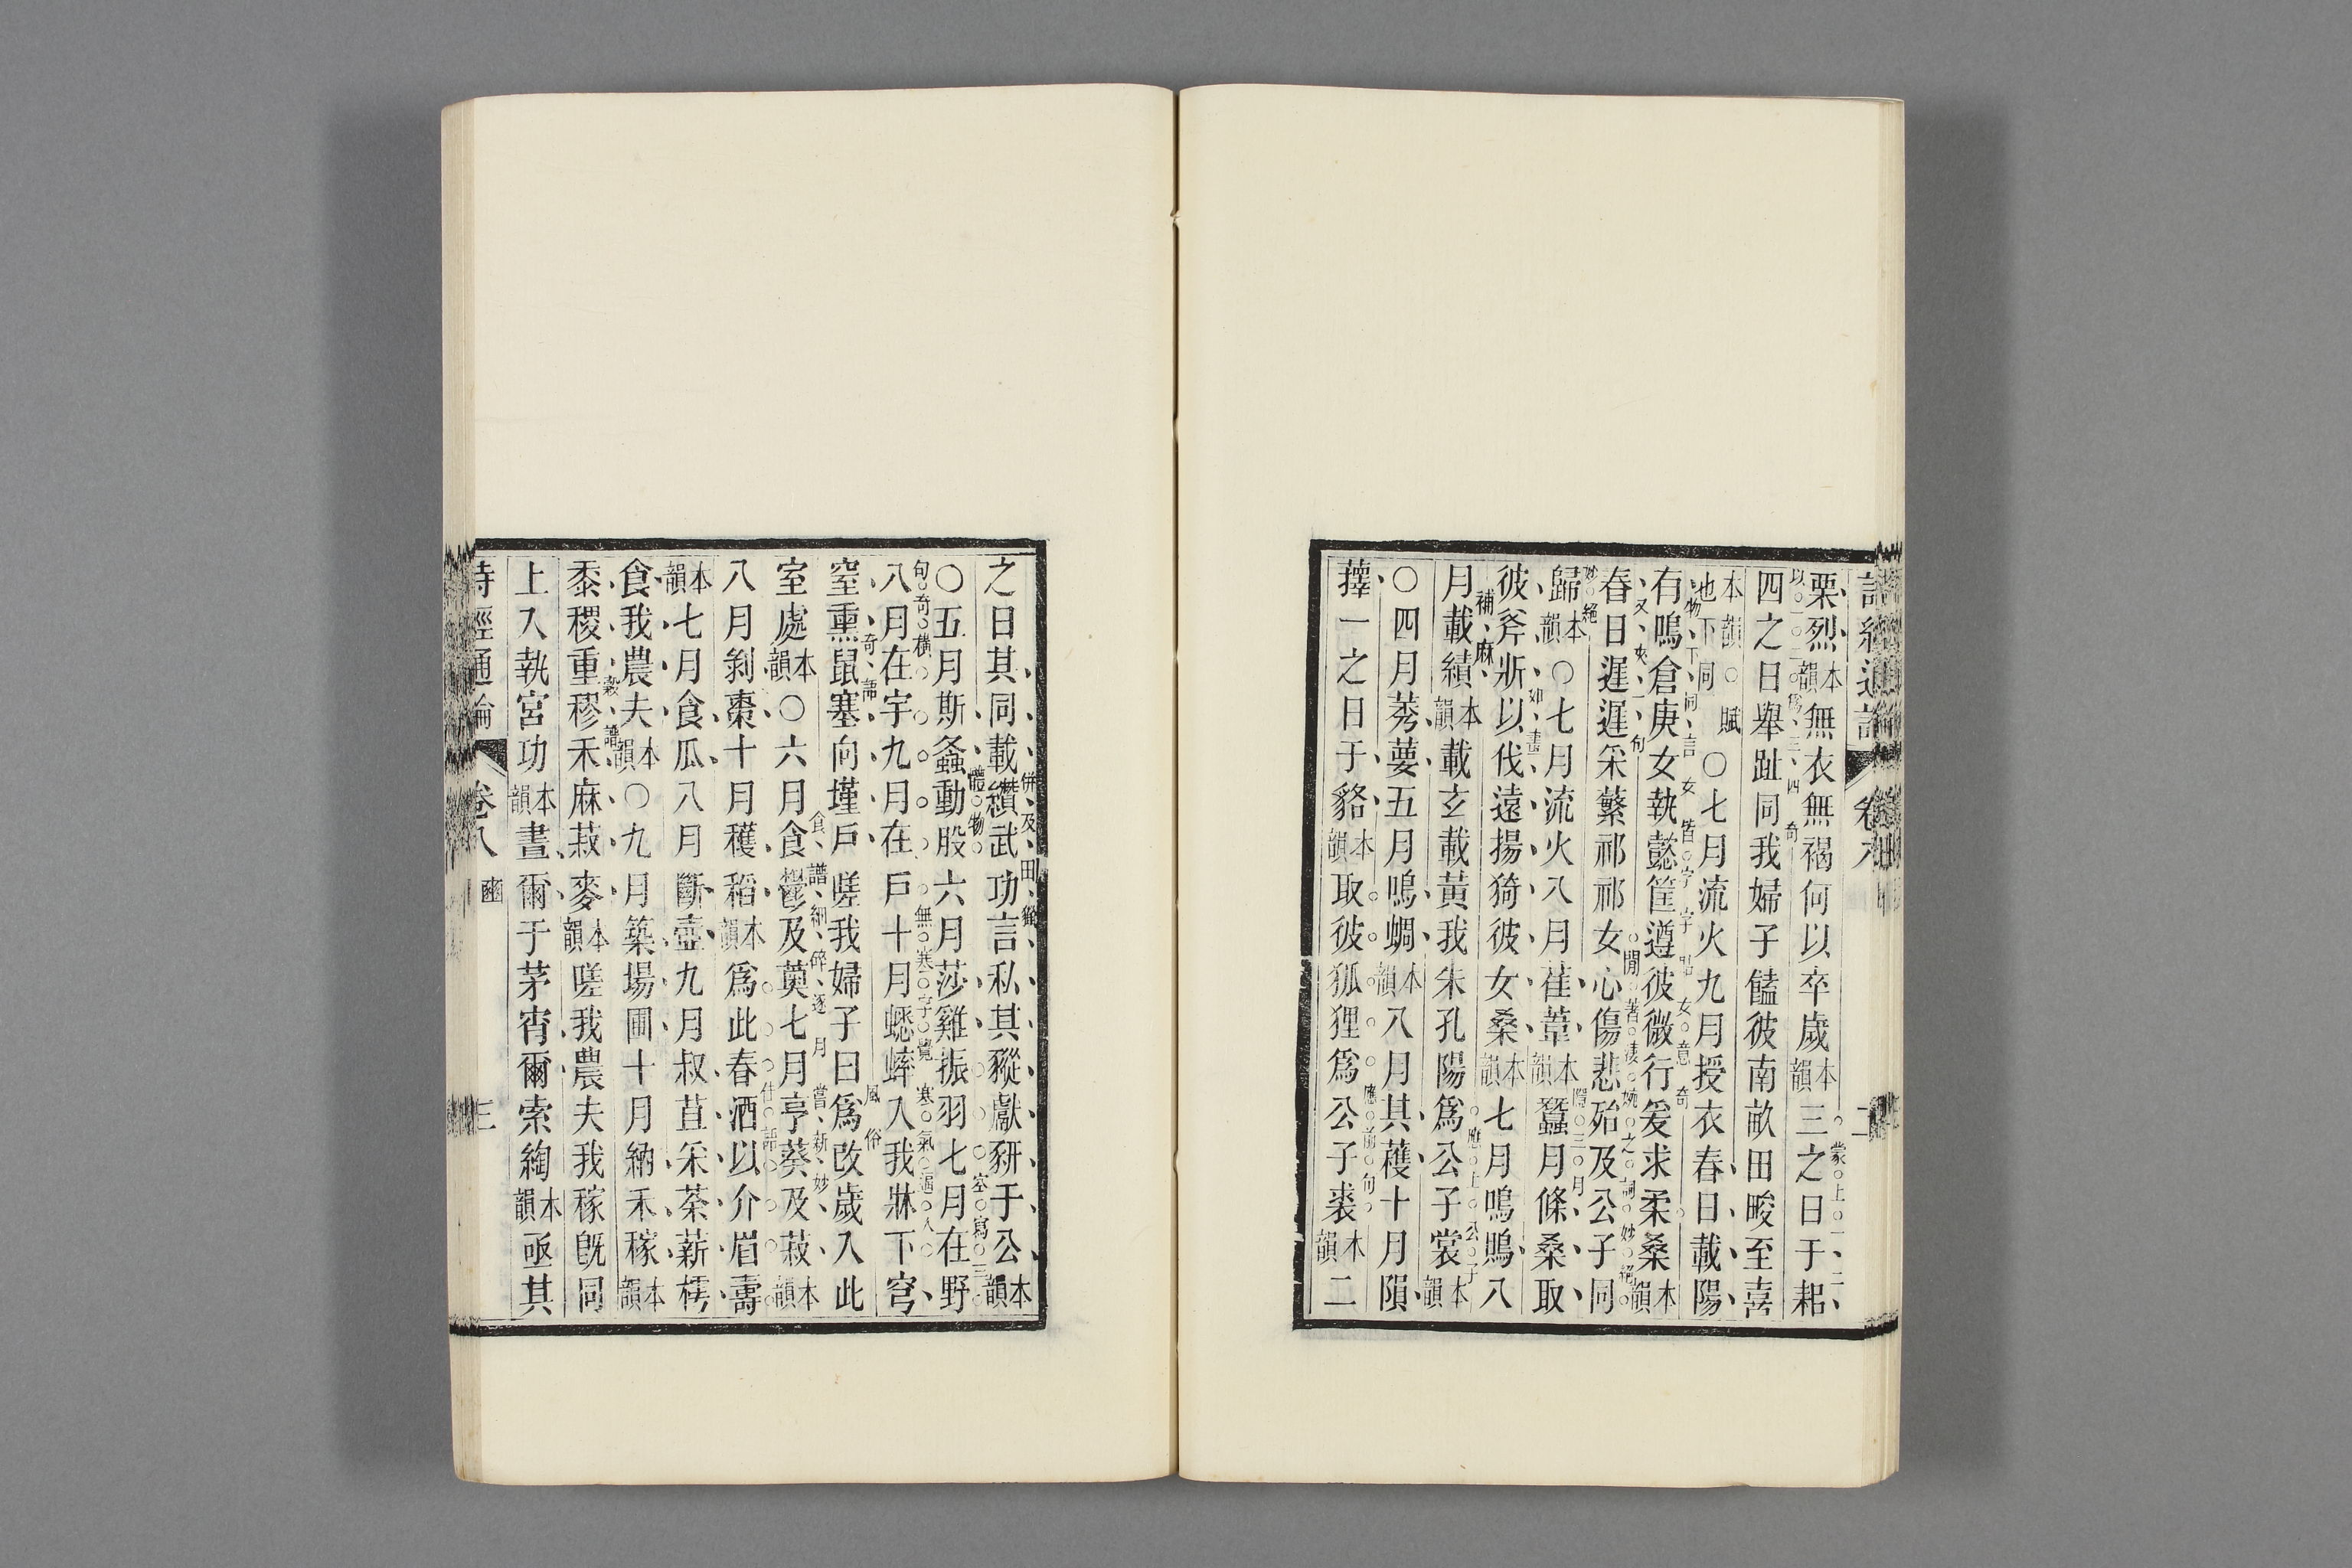 栗烈本韻無衣無褐何以卒歲本韻三之日于耜
四之日舉趾同我婦子饁彼南畝田畯至喜
本韻○賦也下同○七月流火九月授衣春日載陽
有鳴倉庚女執懿筐遵彼微行爰求柔桑本韻
春日遲遲采蘩祁祁女心傷悲殆及公子同
歸本韻○七月流火八月萑葦本韻蠶月條桑取
彼斧斨以伐遠揚猗彼女桑本韻七月鳴鵙八
月載績本韻載玄載黃我朱孔陽爲公子裳本韻
○四月莠葽五月鳴蜩本韻八月其穫十月隕
蘀一之日于貉本韻取彼狐狸爲公子裘本韻二
之日其同載纘武功言私其豵獻豜于公本韻
○五月斯螽動股六月莎雞振羽七月在野
八月在宇九月在戶十月蟋蟀入我牀下穹
窒熏鼠塞向墐戶嗟我婦子曰爲改歲入此
室處本韻○六月食鬱及薁七月亨葵及菽本韻
八月剝棗十月穫稻本韻爲此春酒以介眉壽
本韻七月食瓜八月斷壺九月叔苴采荼薪樗
食我農夫本韻○九月築場圃十月納禾稼本韻
黍稷重穋禾麻菽麥本韻嗟我農夫我稼既同
上入執宮功本韻晝爾于茅宵爾索綯本韻亟其
詩經通論 卷八 豳 三